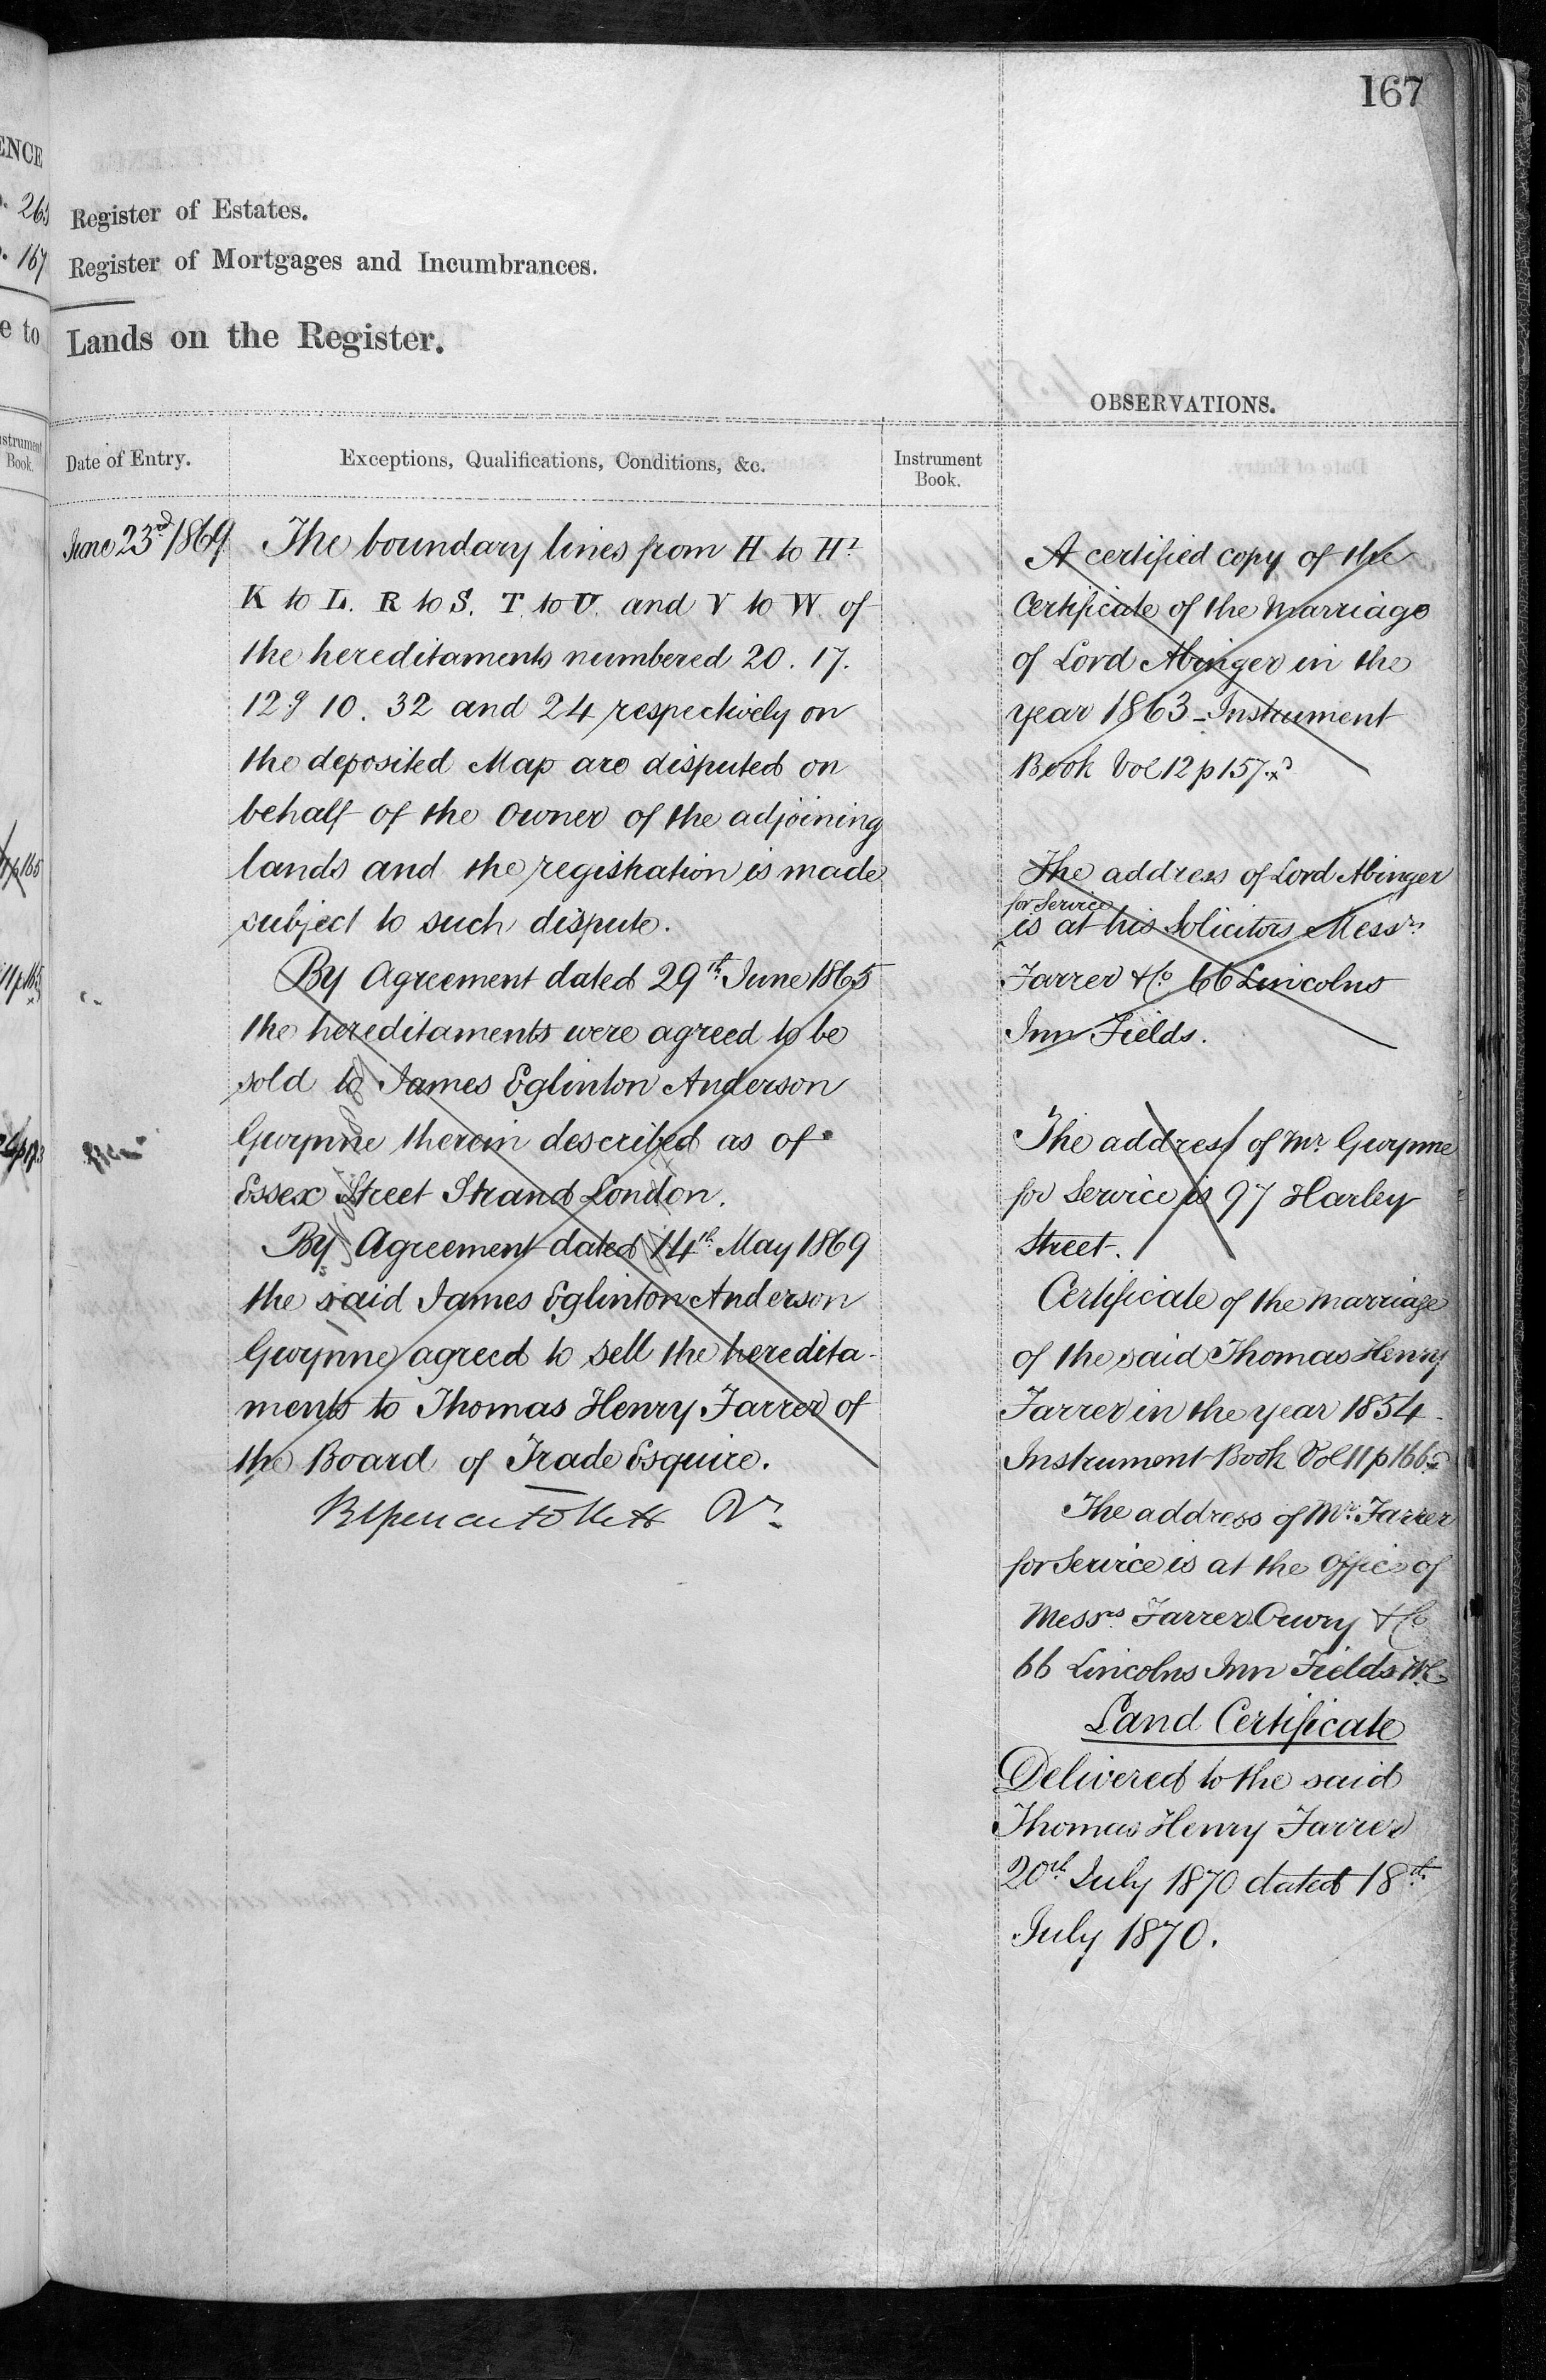 167
ENCE
. 265
. 167
e to
Instrument
Book.
Register of Estates.
Register of Mortgages and Incumbrances.
Lands on the Register.
Date of Entry.
Exceptions, Qualifications, Conditions, &c.
Instrument
Book.
June 23rd 1869
The boundary lines from H to H1
K to L. R to S. T. to U. and V to W. of
the hereditaments numbered 20. 17.
12g 10. 32 and 24 respectively on
the deposited Map are disputed on
behalf of the Owner of the adjoining
lands and the registration is made
subject to such dispute.
By Agreement dated 29th June 1865
the hereditaments were agreed to be
sold to James Eglinton Anderson
Gwynne therein described as of
Essex Street Strand London.
By Agreement dated 14th May 1869
the said James Eglinton Anderson
Gwynne agreed to sell the heredita-
ments to Thomas Henry Farrer of
the Board of Trade Esquire.
OBSERVATIONS.
A certified copy of the
Certificate of the Marriage
of Lord Abinger in the
year 1863 - Instrument
Book Vol 12 p 157.
The address of Lord Abinger
for Service
is at his Solicitors Messrs
Farrer & Co 66 Lincolns
Inn Fields.
The address of Mr Gwynne
for Service is 97 Harley
Street.
Certificate of the Marriage
of the said Thomas Henry
Farrer in the year 1854.
Instrument Book Vol 11 p 166
The address of Mr. Farrer
for Service is at the Office of
Messrs Farrer Ouvry & Co
66 Lincolns Inn Fields W.C.
Land Certificate
Delivered to the said
Thomas Henry Farrer
20th July 1870 dated 18th
July 1870.